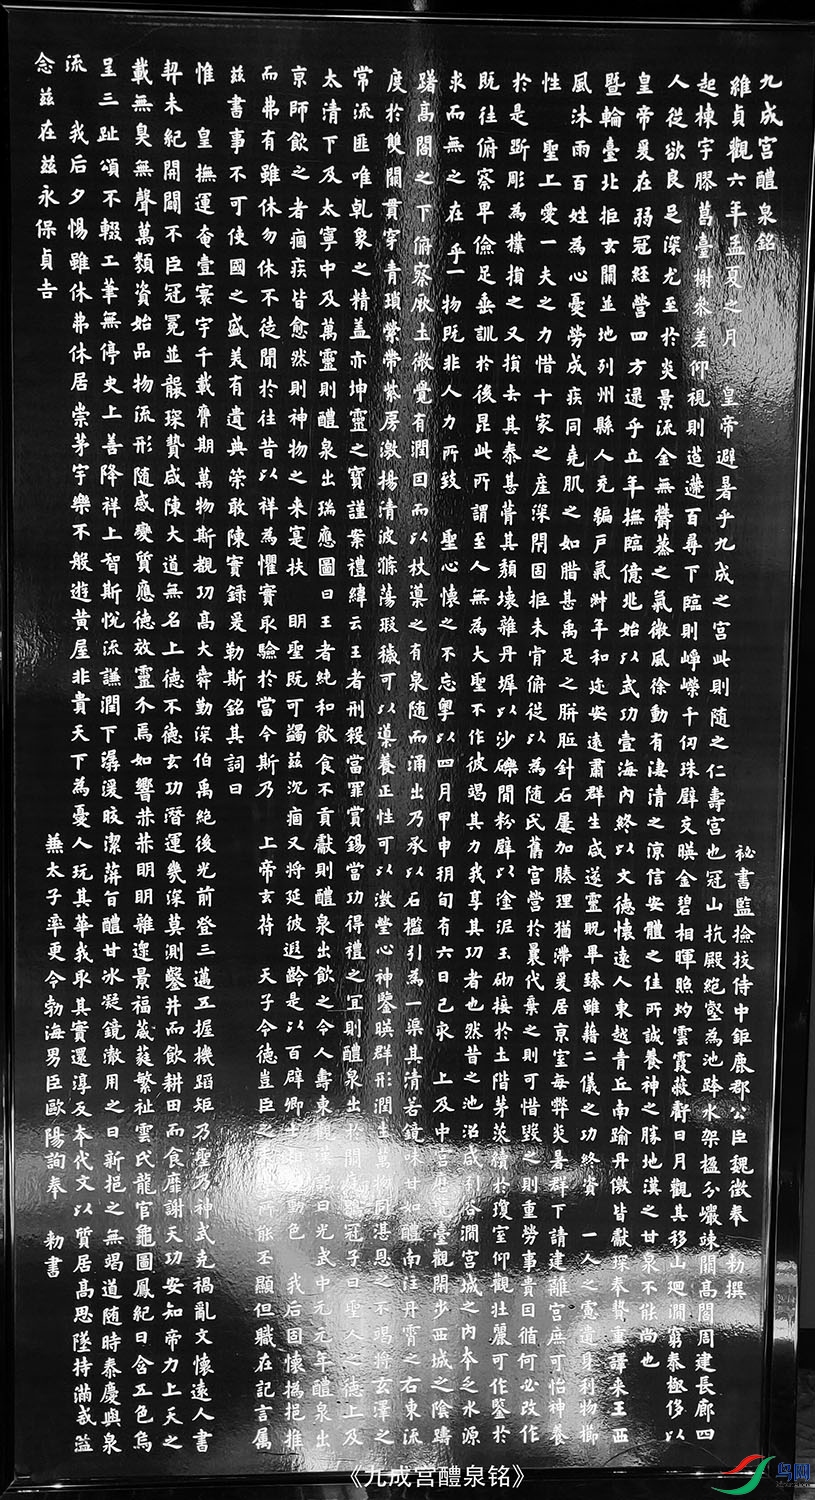 九成宮醴泉銘
祕書監撿挍侍中鉅鹿郡公臣魏徵奉 勑撰
維貞觀六年孟夏之月 皇帝避暑乎九成之宮此則随之仁壽宮也冠山抗殿絕壑為池跨水架楹分巖竦闕高閣周建長廊四
起棟宇膠葛臺榭叅差仰視則迢遰百尋下臨則崢嶸千仞珠璧交暎金碧相暉照灼雲霞蔽虧日月觀其移山迴澗窮泰極侈以
人從欲良足深尤至於炎景流金無鬱蒸之氣微風徐動有淒清之涼信安體之佳所誠養神之勝地漢之甘泉不能尚也
皇帝爰在弱冠經營四方逮乎立年撫臨億兆始以武功壹海內終以文德懷遠人東越青丘南踰丹徼皆獻琛奉贄重譯来王西
暨輪臺北拒玄闕並地列州縣人充編戶氣淑年和迩安遠肅群生咸遂靈貺畢臻雖藉二儀之功終資 一人之慮遺身利物櫛
風沐雨百姓為心憂勞成疾同堯肌之如腊甚禹足之胼胝針石屢加腠理猶滯爰居京室每弊炎暑群下請建離宮庶可怡神養
性 聖上愛一夫之力惜十家之產深閇固拒未肯俯從以為随氏舊宮營於曩代棄之則可惜毀之則重勞事貴因循何必改作
於是斲彫為樸損之又損去其泰甚葺其頹壞雜丹墀以沙礫間粉壁以塗泥玉砌接於土階茅茨續於瓊室仰觀壯麗可作鑒於
既往俯察卑儉足垂訓於後昆此所謂至人無為大聖不作彼竭其力我享其功者也然昔之池沼咸引谷澗宮城之內本乏水源
求而無之在乎一物既非人力所致 聖心懷之不忘粵以四月甲申朔旬有六日己亥 上及中宮歷覽臺觀閑步西城之陰躊
躇高閣之下俯察厥土微覺有潤因而以杖導之有泉随而涌出乃承以石檻引為一渠其清若鏡味甘如醴南注丹霄之右東流
度於雙闕貫穿青瑣縈帶紫房激揚清波滌蕩瑕穢可以導養正性可以澂瑩心神鑒暎群形潤生萬物同湛恩之不竭將玄澤之
常流匪唯乹象之精盖亦坤靈之寶謹案禮緯云王者刑殺當罪賞錫當功得禮之宜則醴泉出於闕庭鶡冠子曰聖人之德上及
太清下及太寧中及萬靈則醴泉出瑞應圖曰王者純和飲食不貢獻則醴泉出飲之令人壽東觀漢記曰光武中元元年醴泉出
京師飲之者痼疾皆愈然則神物之来寔扶 明聖既可蠲茲沉痼又將延彼遐齡是以百辟卿士相趨動色 我后固懷撝挹推
而弗有雖休勿休不徒聞於往昔以祥為懼實取驗於當今斯乃 上帝玄苻 天子令德豈臣之末學所能丕顯但職在記言屬
茲書事不可使國之盛美有遺典策敢陳實錄爰勒斯銘其詞曰
惟 皇撫運奄壹寰宇千載膺期萬物斯覩功高大舜勤深伯禹絕後光前登三邁五握機蹈矩乃聖乃神武克禍亂文懷遠人書
契未紀開闢不臣冠冕並襲琛贄咸陳大道無名上德不德玄功潛運幾深莫測鑿井而飲耕田而食靡謝天功安知帝力上天之
載無臭無聲萬類資始品物流形随感變質應德效靈介焉如響赫赫明明雜遝景福葳蕤繁祉雲氏龍官龜圖鳳紀日含五色烏
呈三趾頌不輟工筆無停史上善降祥上智斯悅流謙潤下潺湲皎潔蓱旨醴甘冰凝鏡澈用之日新挹之無竭道随時泰慶與泉
流 我后夕惕雖休弗休居崇茅宇樂不般遊黃屋非貴天下為憂人玩其華我取其實還淳反本代文以質居高思墜持滿戒溢
念茲在茲永保貞吉
兼太子率更令勃海男臣歐陽詢奉 勑書
《九成宫醴泉铭》
鸟网